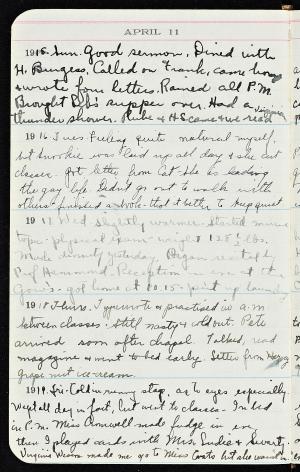 APRIL 11
1915. Sun. Good sermon. Dined with
H. Burgess. Called on Frank, came home
& wrote four letters. Rained all P.M.
Brought supper over. Had a
thunder shower. Rube & H.S. came & we read
1916 Tues. Feeling quite natural myself,
but was laid up all day & she cut
classes. Got letter from Cat. She is leading
the gay life. Didn't go out to walk with
others. Finished a book. Tho't better to keep quiet
1917 Wed. Slightly warmer. Started
physical exam - weight 128 ½ lbs.
Made Began recital by
Prof Hammond. Reception in eve at the
Gov's. Got home at 10.15.
1918 Thurs. Typewrote & practised in a.m.
between classes. Still nasty & cold out. Pete
arrived soon after chapel. Talked, read
magazine & went to bed early. Letter from
Grape nut ice-cream.
1919. Fri. Cold in running stage, as to eyes especially.
Wept all day in fact, but went to classes. In bed
in P.M. Miss made fudge in eve
then I played cards with Mrs. & Swart.
Virginia made me go to Miss Coats but